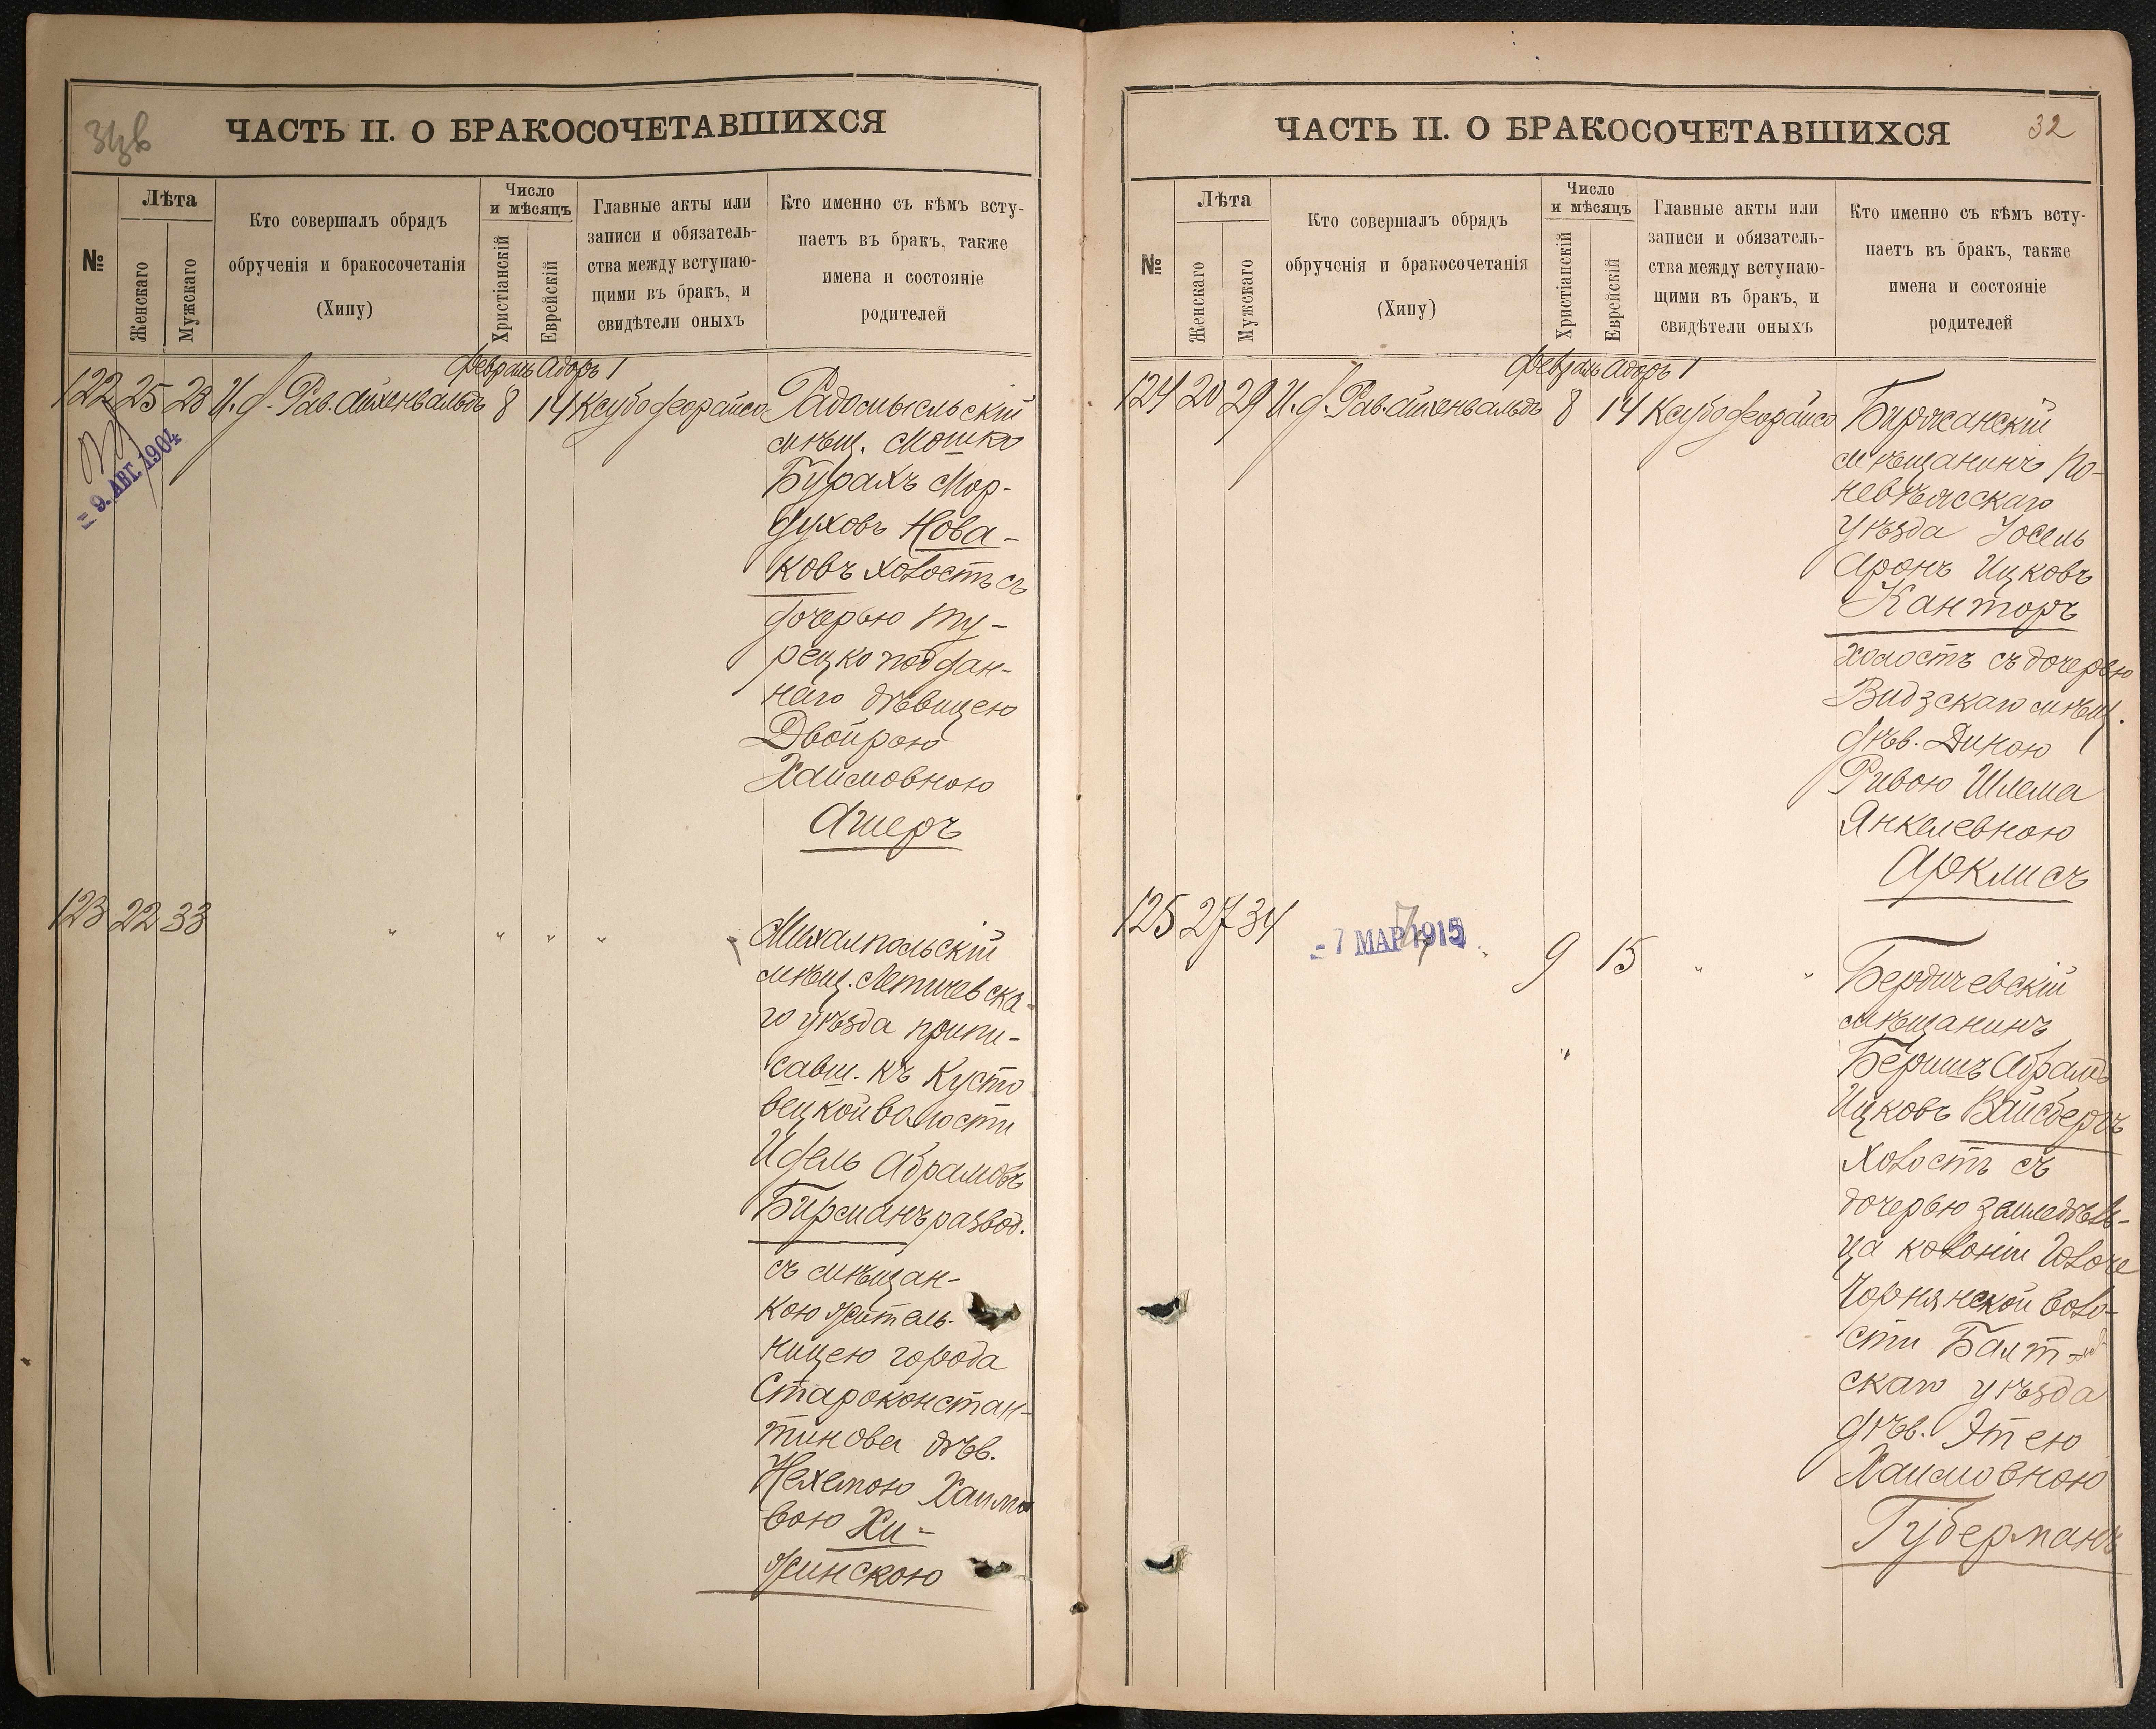 ЧАСТЬ II. О БРАКОСОЧЕТАВШИХСЯ
№
Лѣта
Женскаго
Мужскаго
Кто совершалъ обрядъ
обрученія и бракосочетанія
(Хипу)
Число
и мѣсяцъ
Христіанскій
Еврейскій
Главные акты или
записи и обязатель-
ства между вступаю-
щими въ бракъ, и
свидѣтели оныхъ
Кто именно съ кѣмъ всту-
паетъ въ бракъ, также
имена и состояніе
родителей
Февраль Адоръ 1
122 25 23 И.д. Рав. Айхенвальдъ 8 14 Ксубо деорайсо Радомысльскій
= 9. АВГ. 1904
мѣщ. Мошко
Бурахъ Мор-
духовъ Нова-
ковъ холостъ съ
дочерью ту-
рецко поддан-
наго дѣвицею
Двойрою
Хаимовною
Ашеръ
123 22 33 " " " " " Михалпольскій
мѣщ. Летичевска-
го уѣзда припи-
савш. къ Кусто
вецкой волости
Идель Абрамовъ
Бирманъ развод.
съ мѣщан-
кою житель-
ницею города
Староконстан-
тинова дѣв.
Нехемою Хаимо
вою Хи-
жинскою
ЧАСТЬ II. О БРАКОСОЧЕТАВШИХСЯ
32
№
Лѣта
Женскаго
Мужскаго
Кто совершалъ обрядъ
обрученія и бракосочетанія
(Хипу)
Число
и мѣсяцъ
Христіанскій
Еврейскій
Главные акты или
записи и обязатель-
ства между вступаю-
щими въ бракъ, и
свидѣтели оныхъ
Кто именно съ кѣмъ всту-
паетъ въ бракъ, также
имена и состояніе
родителей
Февраль Адоръ 1
124 20 29 И.д. Рав. Айхенвальдъ 8 14 Ксубо деорайсо Биржанскій
мѣщанинъ По-
невѣжскаго
уѣзда Іосель
Аронъ Ицковъ
Канторъ
холостъ съ дочерью
Видзскаго мѣщ.
дѣв. Диною
Ривою Шлема
Янкелевною
Арклисъ
125 27 34 = 7 МАР 1915 " 9 15 " " Бердичевскій
мѣщанинъ
" Беришъ Абрамъ
Ицковъ Вайсбергъ
холостъ съ
дочерью земледѣль-
ца колоніи
Чорнянской воло-
сти Балт-
скаго уѣзда
дѣв. Этею
Хаимовною
Губерманъ